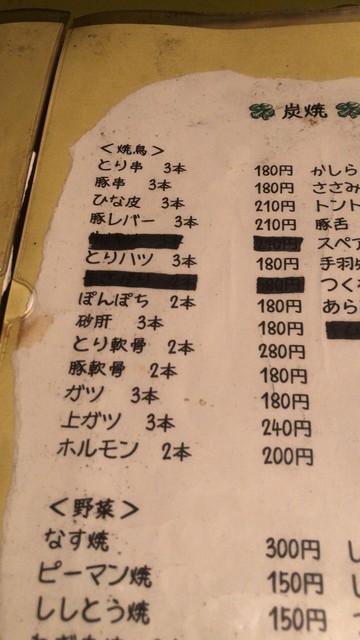 炭焼
＜焼鳥＞
とり串 3本 180円 かしら
豚串 3本 180円 ささみ
ひな皮 3本 210円 トント
豚レバー 3本 210円 豚舌
スペア
とりハツ 3本 180円 手羽
つく
ぽんぽち 2本 180円 あら
砂肝 3本 180円
とり軟骨 2本 280円
豚軟骨 2本 180円
ガツ 3本 180円
上ガツ 3本 240円
ホルモン 2本 200円
＜野菜＞
なす焼 300円
ピーマン焼 150円
ししとう焼 150円